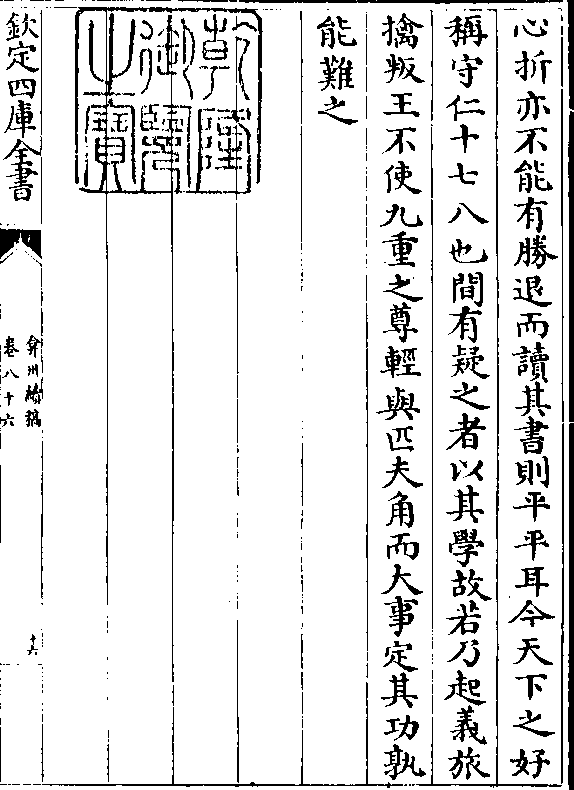 心折亦不能有勝退而讀其書則平平耳今天下之好
稱守仁十七八也間有疑之者以其學故若乃起義旅
擒叛王不使九重之尊輕與匹夫角而大事定其功孰
能難之
乾隆
御覽
之寶
欽定四庫全書
弇州續稿
卷八十六
十六